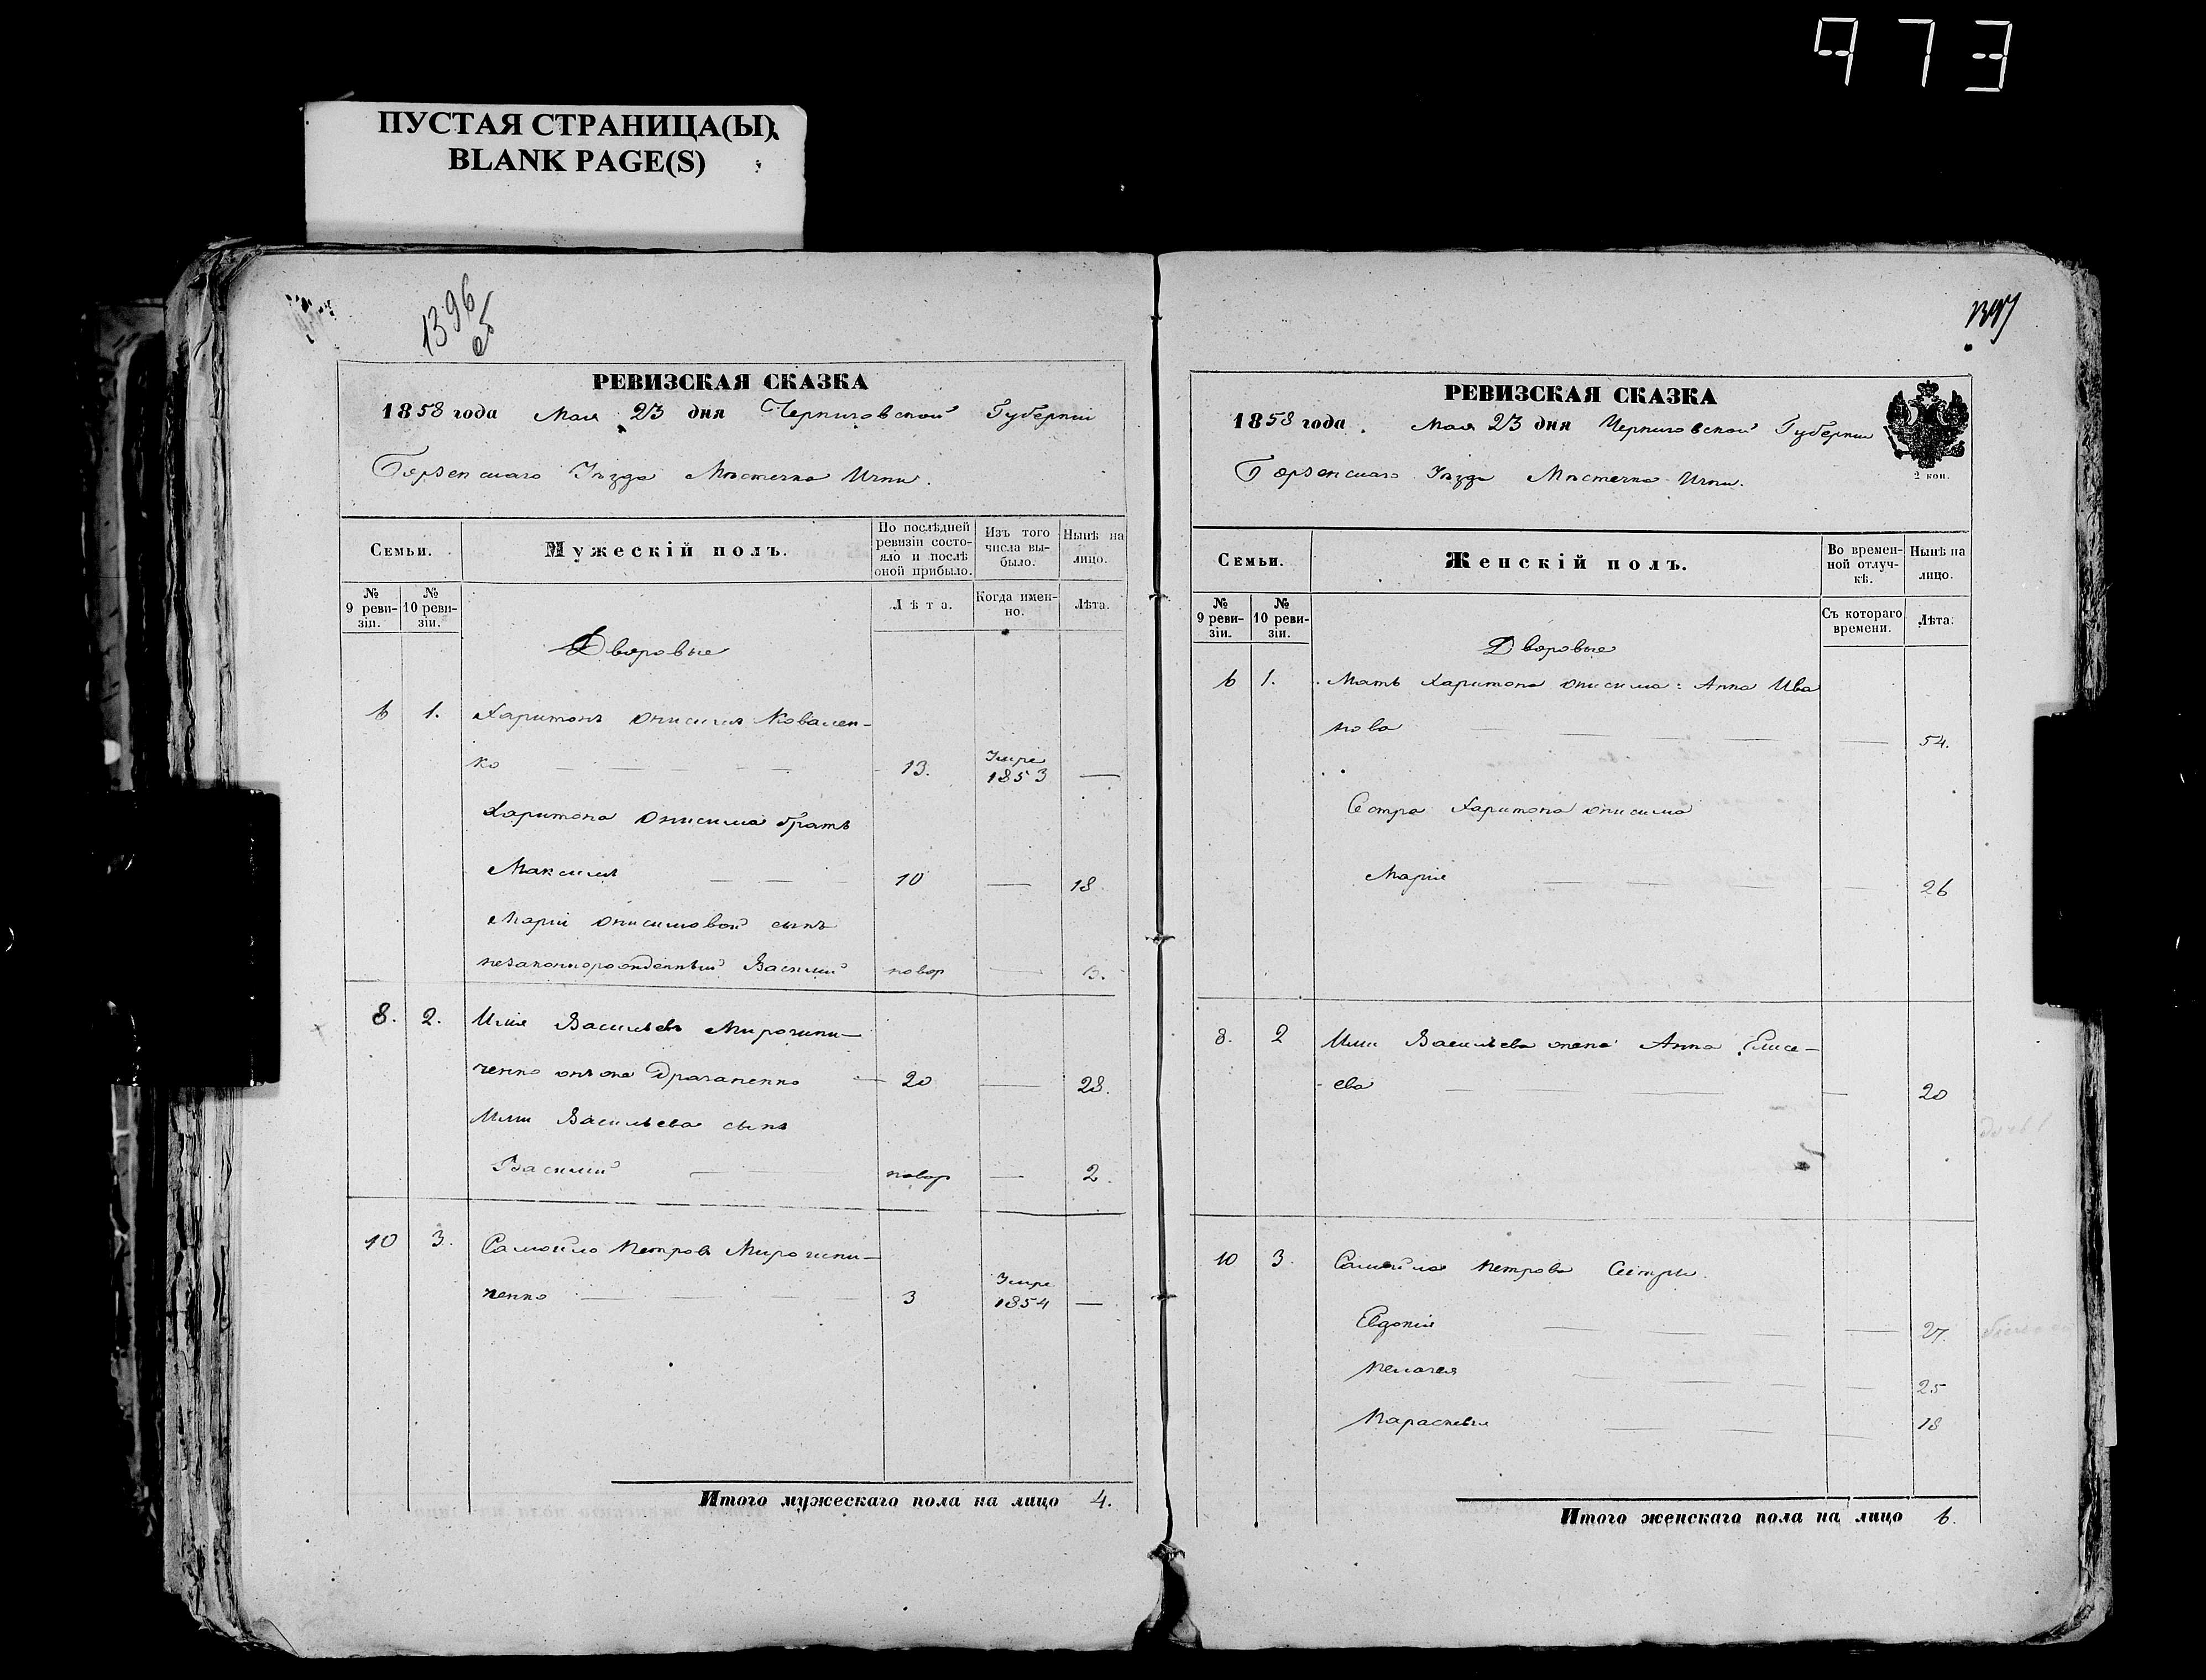 973
ПУСТАЯ СТРАНИЦА(Ы)
BLANK PAGE(S)
1396
об
РЕВИЗСКАЯ СКАЗКА
1858 года Мая 23 дня Черниговской Губерніи
Борзенскаго Уѣзда Мѣстечка Ични.
Семьи.
Мужескій полъ.
По послѣдней ревизіи состояло и послѣ оной прибыло.
Изъ того числа выбыло.
Нынѣ на лицо.
№ 9 ревизіи.
№ 10 ревизіи.
Лѣта.
Когда именно.
Лѣта.
Дворовые
6 1. Харитонъ Онисимъ Ковален-
ко 13. Умре 1853 —
Харитона Онисима братъ
Максимъ 10 — 18
Маріи Онисимовой сынъ
незаконнорожденный Василий новор —
8. 2. Илія Васильевъ Мирочни-
ченко онъ же Драганенко 20 — 28.
Иліи Васильева сынъ
Василий новор — 2.
10 3. Самойло Петровъ Мирочни-
ченко 3 Умре 1854 —
Итого мужескаго пола на лицо 4.
1397
РЕВИЗСКАЯ СКАЗКА
1858 года Мая 23 дня Черниговской Губерніи
Борзенскаго Уѣзда Мѣстечка Ични.
2 коп.
Семьи.
Женскій полъ.
Во временной отлучкѣ.
Нынѣ на лицо.
№ 9 ревизіи.
№ 10 ревизіи.
Съ котораго времени.
Лѣта.
Дворовые
6 1. Мать Харитона Онисима: Анна Ива
нова — 54.
Сестра Харитона Онисима
Марія — 26
8. 2 Иліи Васильева жена Анна Елисе-
ева — 20
10 3. Самойла Петрова Сестры.
Евдокія — 27.
Пелагея — 25
Параскевія — 18
Итого женскаго пола на лицо 6.